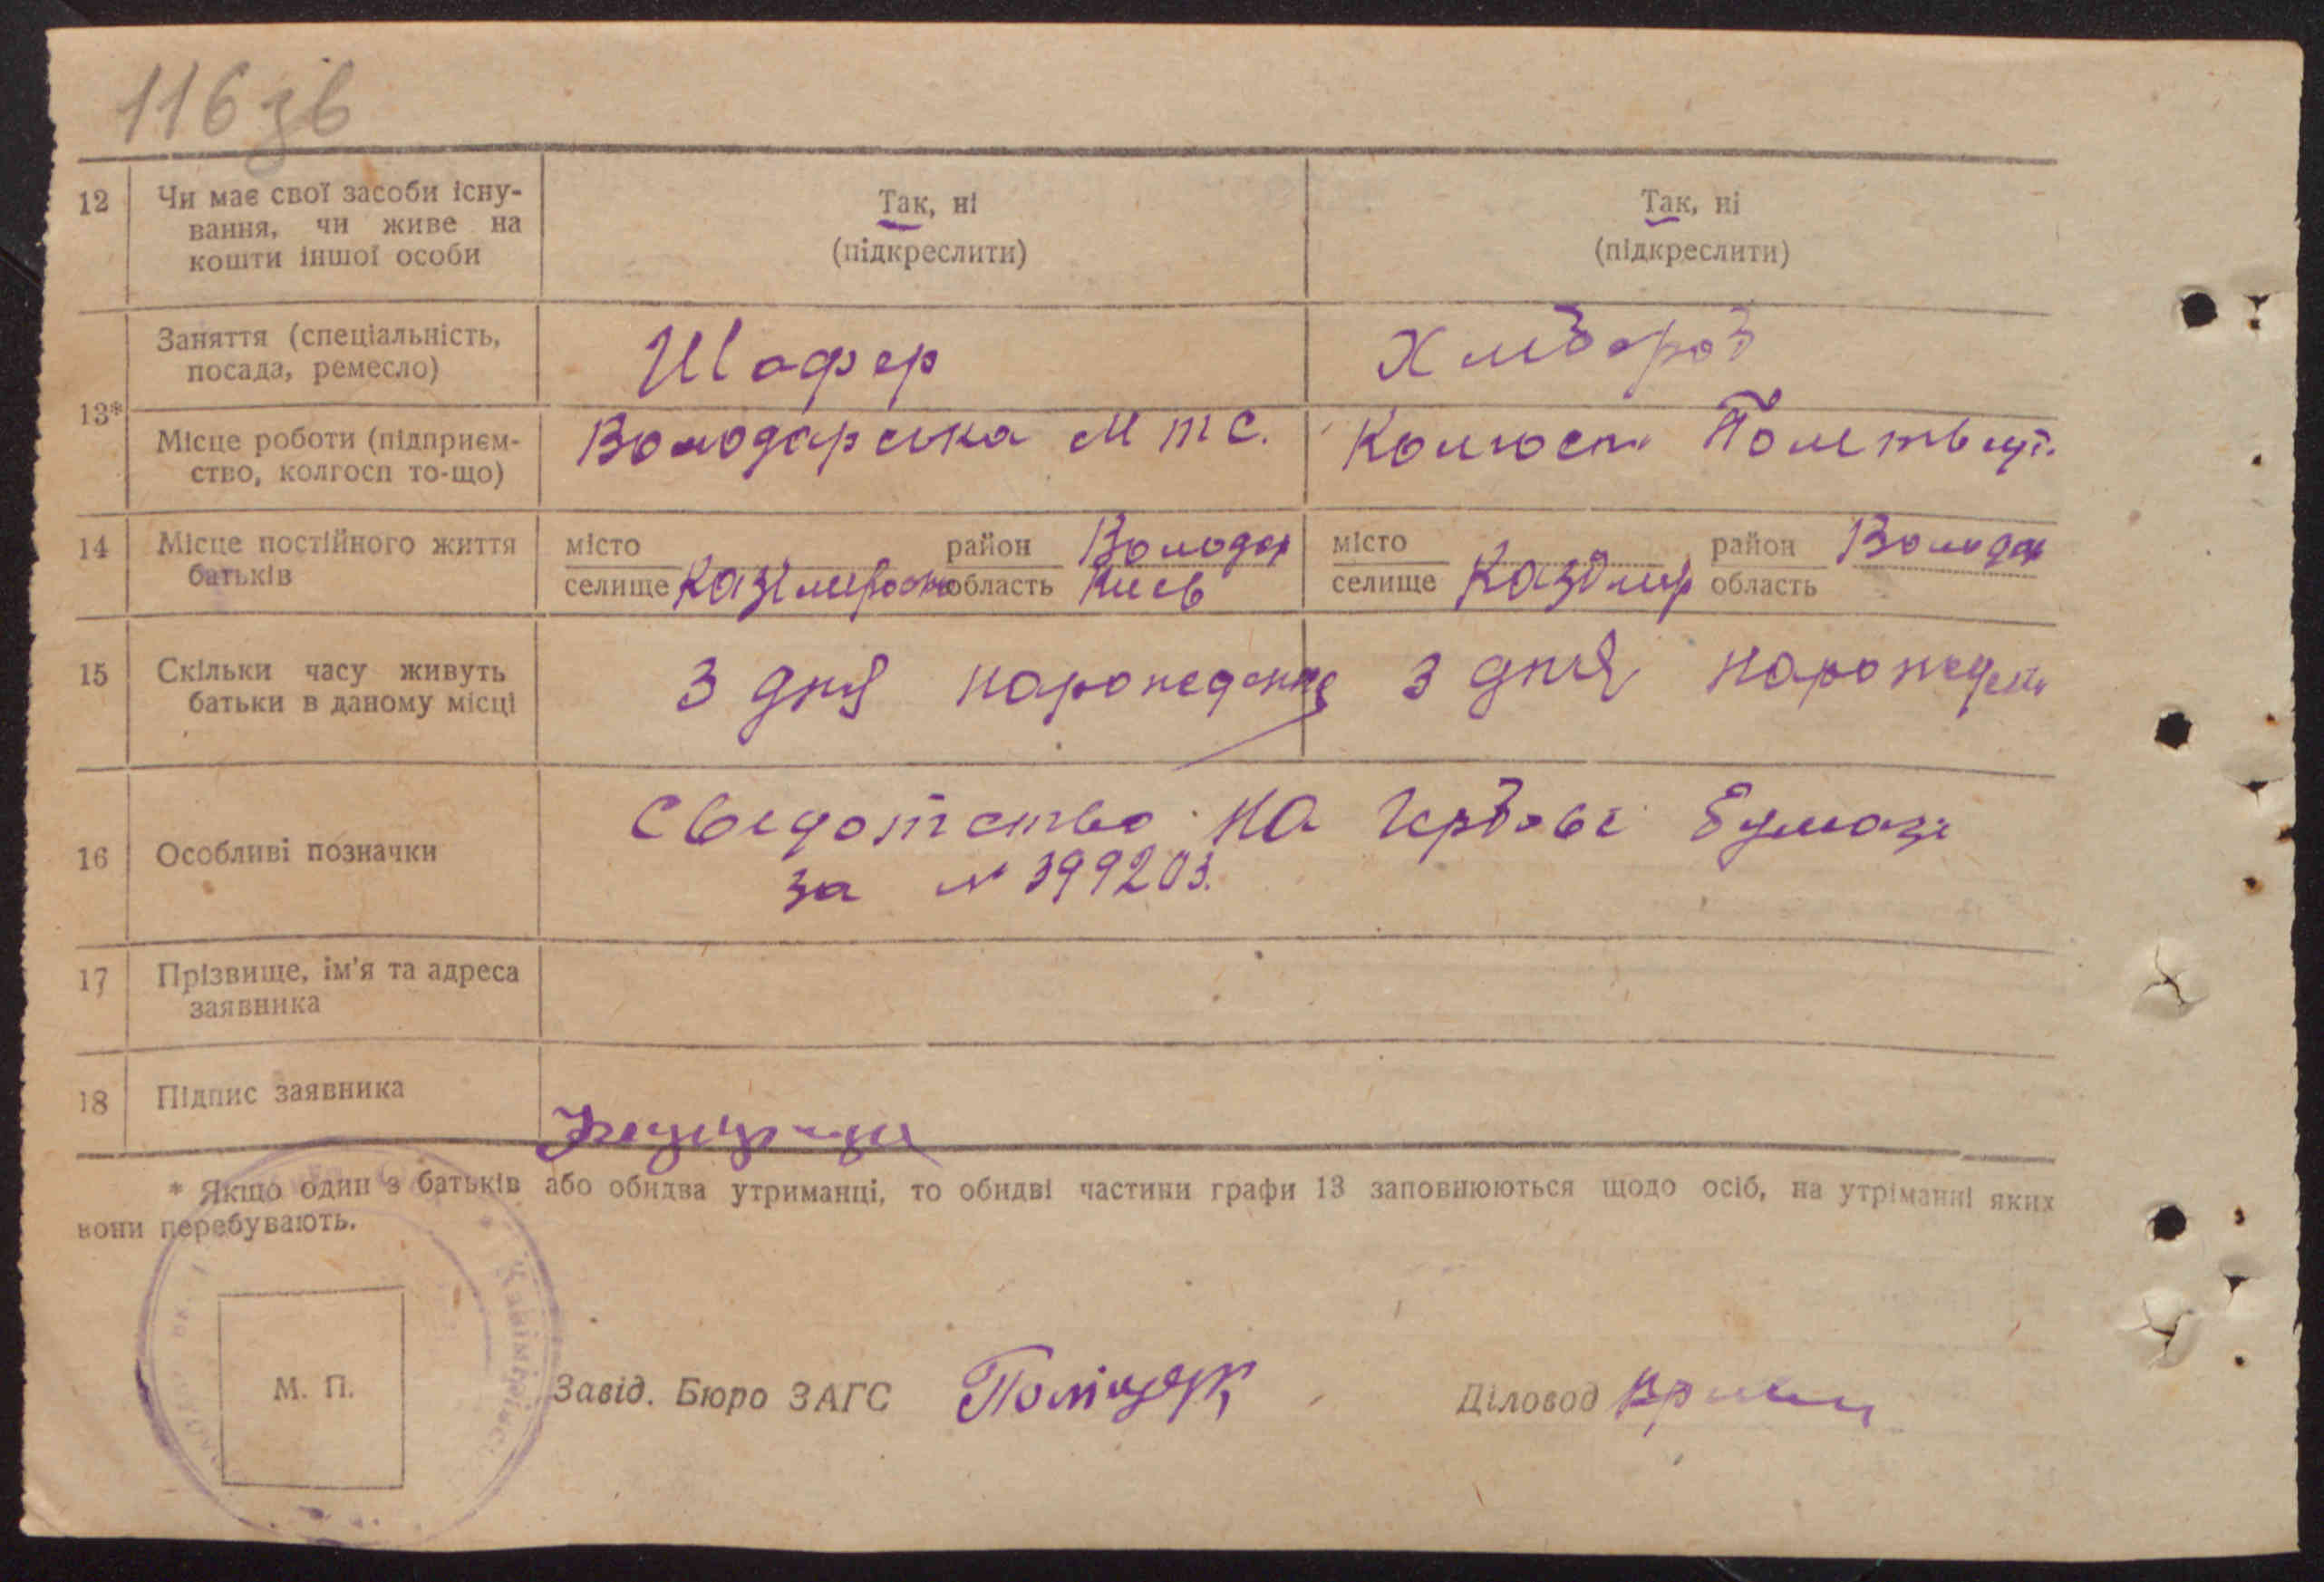 116 зв
12 Чи має свої засоби існу- Так, ні Так, ні
вання, чи живе на (підкреслити) (підкреслити)
кошти іншої особи
13* Заняття (спеціальність, Шофер Хлібороб
посада, ремесло)
Місце роботи (підприєм- Володарська М Т С. Колгосп
ство, колгосп то-що)
14 Місце постійного життя місто район Володар місто район Володар
батьків селище область Київ селище Казімир область
15 Скільки часу живуть З дня народження З дня
батьки в даному місці
16 Особливі позначки на гербові бумазі
за № 399203.
17 Прізвище, ім'я та адреса
заявника
18 Підпис заявника
* Якщо один з батьків або обидва утриманці, то обидві частини графи 13 заповнюються щодо осіб, на утріманні яких
вони перебувають.
М. П. Завід. Бюро ЗАГС Діловод